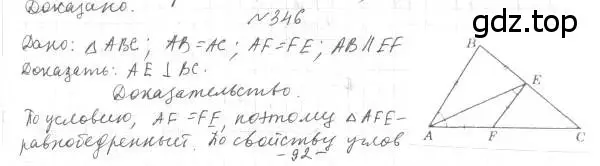 Доказано.
gdz.top
№346
Дано: △ABC; AB=AC; AF=FE; AB∥EF
Доказать: AE⊥BC.
Доказательство.
По условию, AF=FE, поэтому △AFE-
равнобедренный. По свойству углов
-92-
B
E
A
F
C